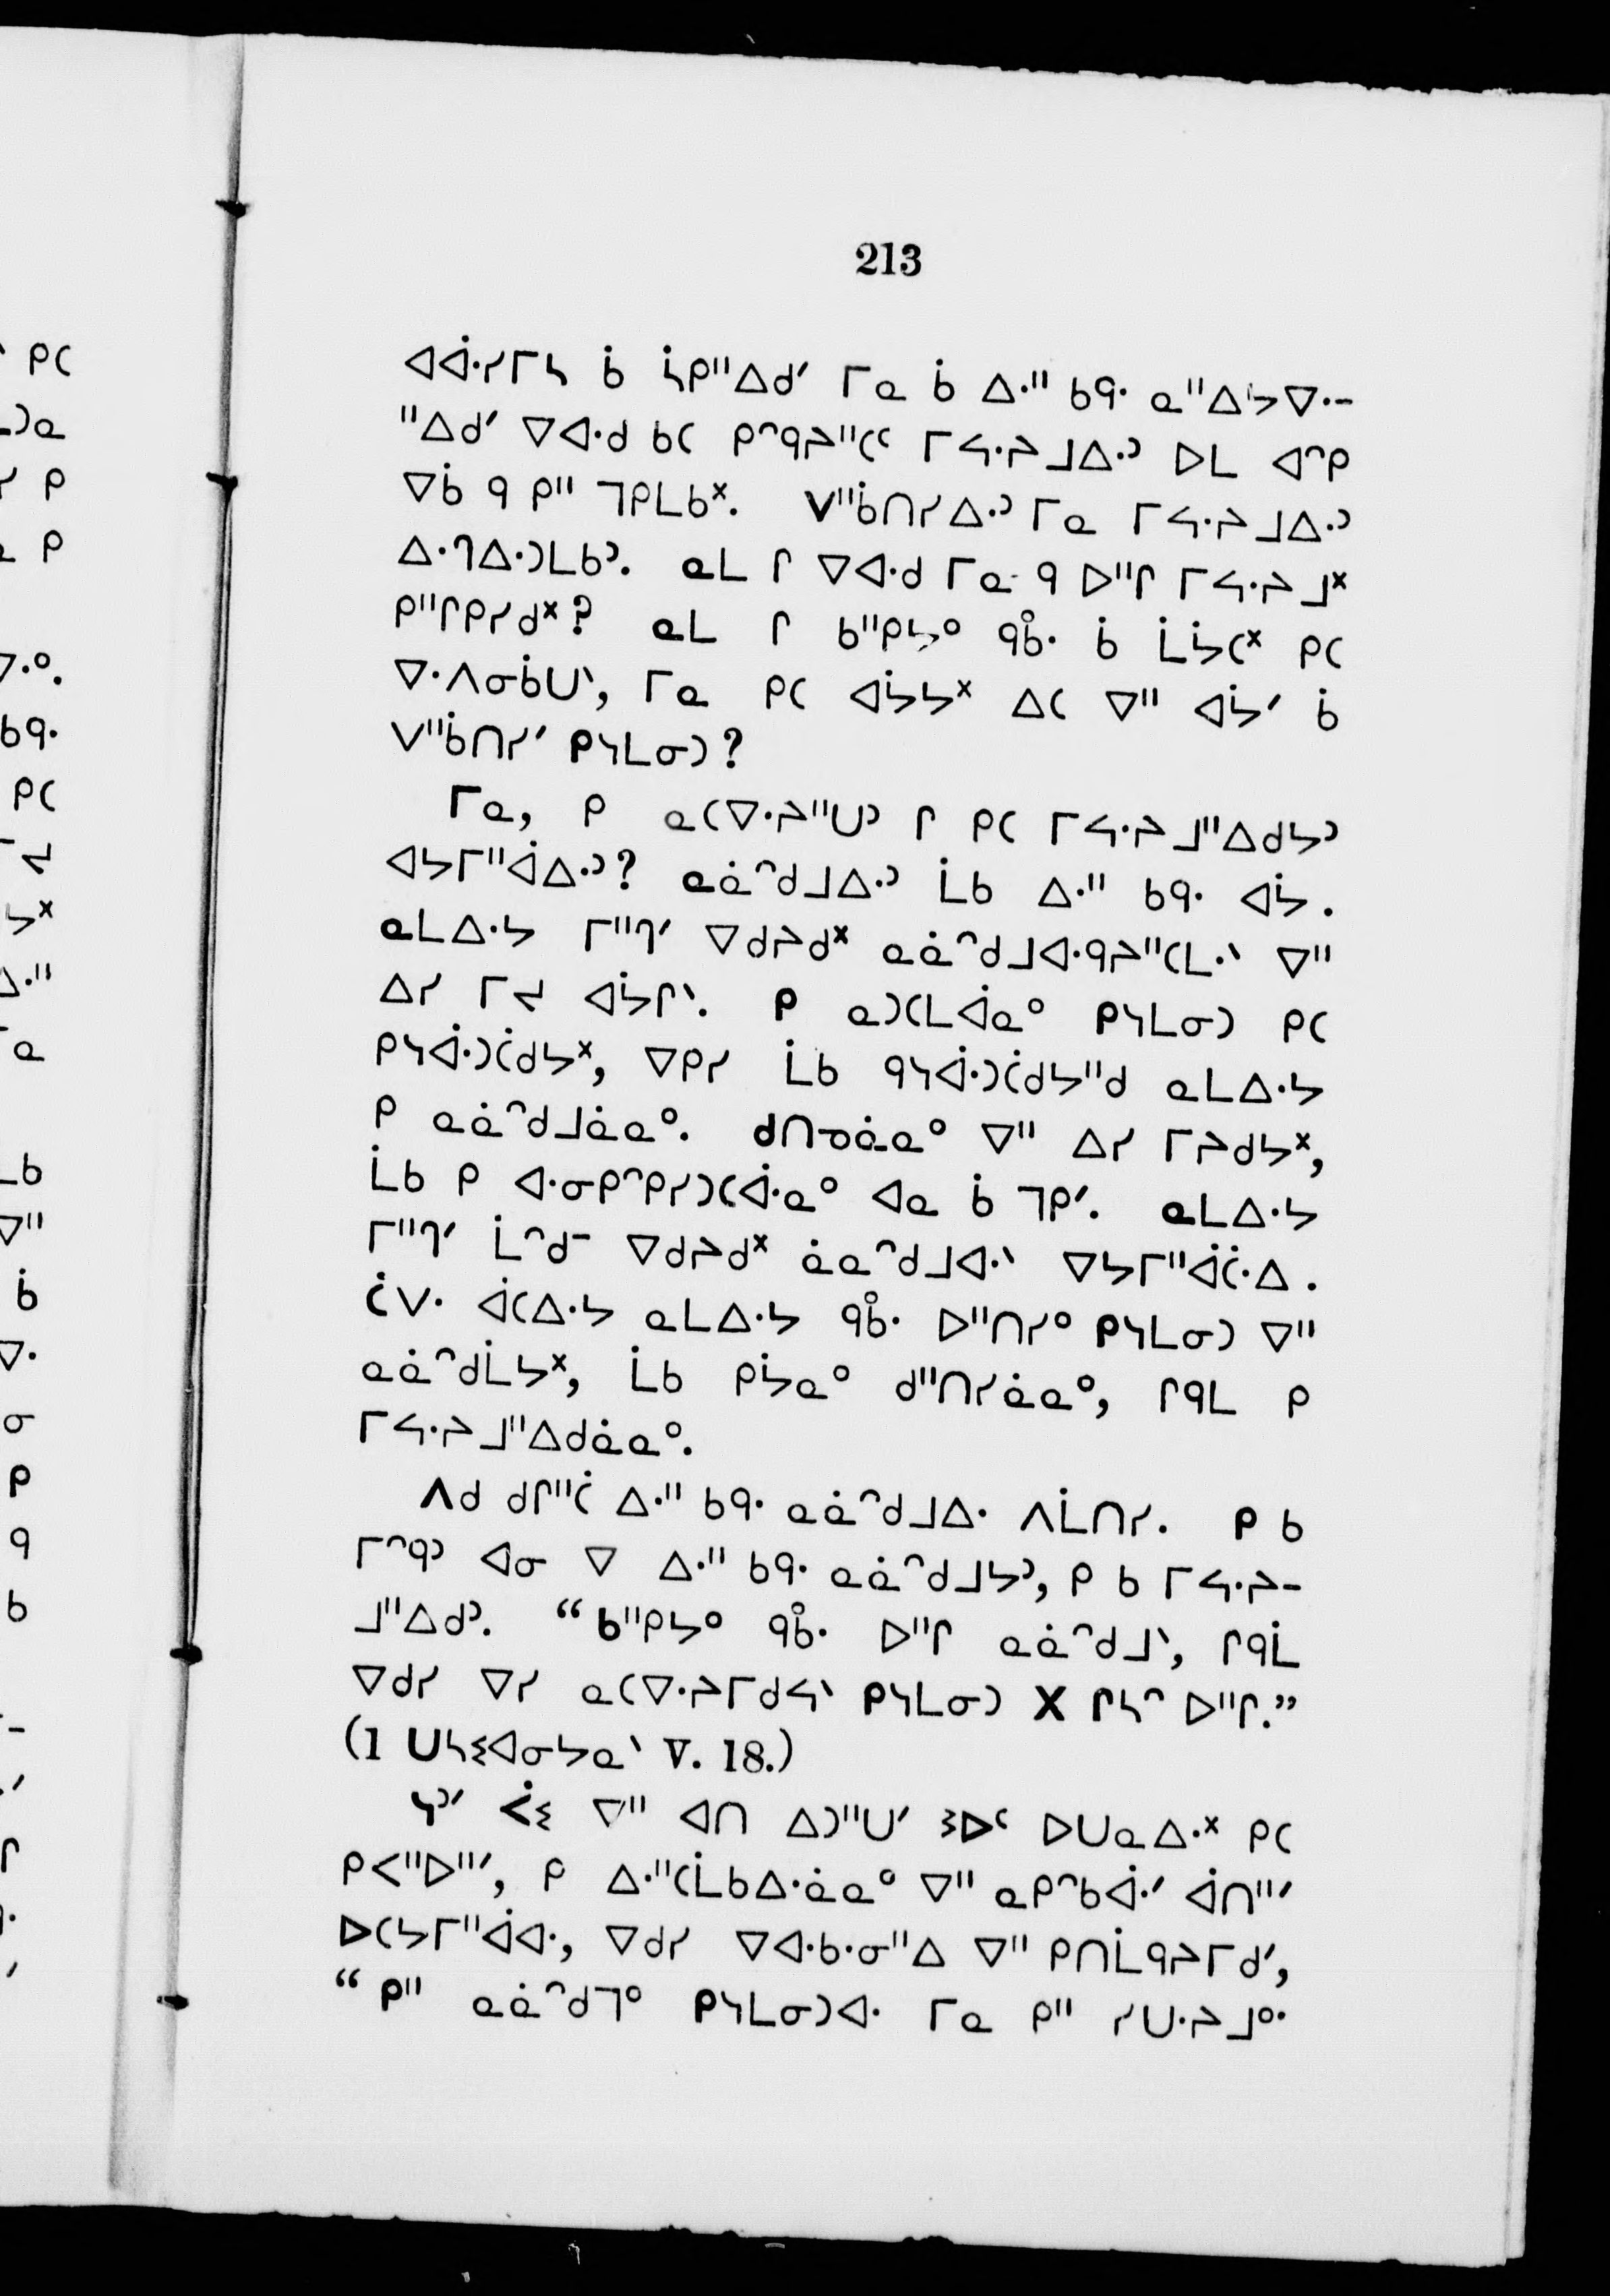 213
ᐊᐋᐧᓯᒥᓴ ᑳ ᓵᑭᐦᐃᑯᐟ ᒥᓇ ᑳ ᐃᐧᐦ ᑲᑫᐧ ᓇᐦᐃᔭᐁᐧ-
ᐦᐃᑯᐟ ᐁᐊᐧᑯ ᑲᑕ ᑭᐢᑫᔨᐦᑕᑦ ᒥᔪᐧᔨᒧᐃᐧᐣ ᐅᒪ ᐊᐢᑭ
ᐁᑳ ᑫ ᑭᐦ ᒣᑭᒪᑲᕽ. ᐯᐦᑳᑎᓯᐃᐧᐣ ᒥᓇ ᒥᔪᐧᔨᒧᐃᐧᐣ
ᐃᐧᒉᐃᐧᑐᒪᑲᐣ. ᓇᒪ ᒋ ᐁᐊᐧᑯ ᒥᓇ ᑫ ᐅᐦᒋ ᒥᔪᐧᔨᒧᕽ
ᑭᐦᒋᑭᓯᑯᕽ? ᓇᒪ ᒋ ᑲᐦᑭᔭᐤ ᑫᑾᐊᐧ ᑳ ᒫᔮᑕᕽ ᑭᑕ
ᐁᐧᐱᓂᑳᑌᐠ, ᒥᓇ ᑭᑕ ᐊᔮᔭᕽ ᐃᑕ ᐁᐦ ᐊᔮᐟ ᑳ
ᐯᐦᑳᑎᓯᐟ ᑭᓭᒪᓂᑐ?
ᒥᓇ, ᑭ ᓇᑕᐁᐧᔨᐦᑌᐣ ᒋ ᑭᑕ ᒥᔪᐧᔨᒧᐦᐃᑯᔭᐣ
ᐊᔭᒥᐦᐋᐃᐧᐣ? ᓇᓈᐢᑯᒧᐃᐧᐣ ᒫᑲ ᐃᐧᐦ ᑲᑫᐧ ᐊᔮ.
ᓇᒪᐃᐧᔭ ᒥᐦᒉᐟ ᐁᑯᔨᑯᕽ ᓇᓈᐢᑯᒧᐊᐧᑫᔨᐦᑕᒪᐧᐠ ᐁᐦ
ᐃᓯ ᒥᔪ ᐊᔮᒋᐠ. ᑭ ᓇᑐᑕᒪᐋᓇᐤ ᑭᓭᒪᓂᑐ ᑭᑕ
ᑭᓭᐋᐧᑐᑖᑯᔭᕽ, ᐁᑭᓯ ᒫᑲ ᑫᓭᐋᐧᑐᑖᑯᔭᐦᑯ ᓇᒪᐃᐧᔭ
ᑭ ᓇᓈᐢᑯᒧᓈᓇᐤ. ᑯᑎᓀᓈᓇᐤ ᐁᐦ ᐃᓯ ᒥᔨᑯᔭᕽ,
ᒫᑲ ᑭ ᐊᐧᓂᑭᐢᑭᓯᑐᑕᐋᐧᓇᐤ ᐊᓇ ᑳ ᒣᑭᐟ. ᓇᒪᐃᐧᔭ
ᒥᐦᒉᐟ ᒫᐢᑯᐨ ᐁᑯᔨᑯᕽ ᓈᓇᐢᑯᒧᐊᐧᐠ ᐁᔭᒥᐦᐋᑖᐧᐃ.
ᑖᐯᐧ ᐋᑕᐃᐧᔭ ᓇᒪᐃᐧᔭ ᑫᑾᐊᐧ ᐅᐦᑎᓯᐤ ᑭᓭᒪᓂᑐ ᐁᐦ
ᓇᓈᐢᑯᒫᔭᕽ, ᒫᑲ ᑭᔮᓇᐤ ᑯᐦᑎᓯᓈᓇᐤ, ᒋᑫᒪ ᑭ
ᒥᔪᐧᔨᒧᐦᐃᑯᓈᓇᐤ.
ᐱᑯ ᑯᒋᐦᑖ ᐃᐧᐦ ᑲᑫᐧ ᓇᓈᐢᑯᒧᐃᐧ ᐱᒫᑎᓯ. ᑭ ᑲ
ᒥᐢᑫᐣ ᐊᓂ ᐁ ᐃᐧᐦ ᑲᑫᐧ ᓇᓈᐢᑯᒧᔭᐣ, ᑭ ᑲ ᒥᔪᐧᔨ-
ᒧᐦᐃᑯᐣ. “ᑲᐦᑭᔭᐤ ᑫᑾᐊᐧ ᐅᐦᒋ ᓇᓈᐢᑯᒧᐠ, ᒋᑫᒫ
ᐁᑯᓯ ᐁᓯ ᓇᑕᐁᐧᔨᒥᑯᔪᐠ ᑭᓭᒪᓂᑐ X ᒋᓴᐢ ᐅᐦᒋ.”
(1 ᑌᓴᕒᐊᓂᔭᓇᐠ V. 18.)
ᓭᐣᐟ ᐹᕒ ᐁᐦ ᐊᑎ ᐃᑐᐦᑌᐟ ᕒᐅᑦ ᐅᑌᓇᐃᐧᕽ ᑭᑕ
ᑭᐸᐦᐅᐦᐟ, ᑭ ᐃᐧᐦᑕᒫᑲᐃᐧᓈᓇᐤ ᐁᐦ ᓇᑭᐢᑲᐋᐧᐟ ᐋᑎᐦᐟ
ᐅᑕᔭᒥᐦᐋᐊᐧ, ᐁᑯᓯ ᐁᐊᐧᑲᐧᓂᐦᐃ ᐁᐦ ᑭᑎᒫᑫᔨᒥᑯᐟ,
“ᑭᐦ ᓇᓈᐢᑯᒣᐤ ᑭᓭᒪᓂᑐᐊᐧ ᒥᓇ ᑭᐦ ᓯᑌᐧᔨᒧᐤ